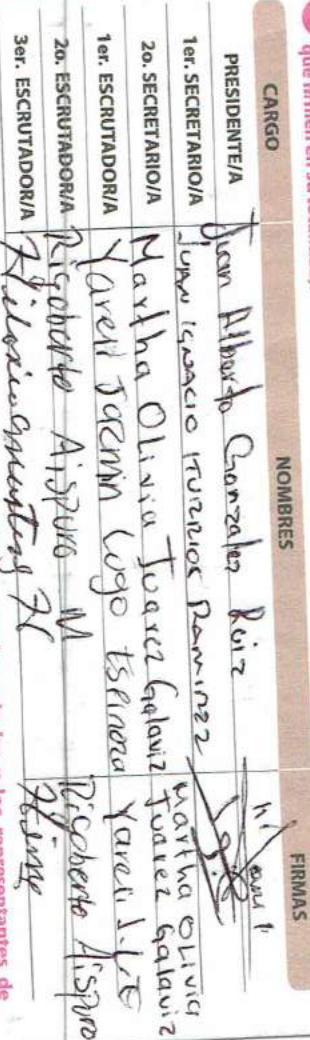 que firmen en su
CARGO NOMBRES FIRMAS
PRESIDENTE/A Juan Alberto Gonzalez Ruiz
1er. SECRETARIO/A Juan Ignacio Iturrios Ramirez
2o. SECRETARIO/A Martha Olivia Juarez Galaviz Martha Olivia Juarez Galaviz
1er. ESCRUTADOR/A Yareli Jazmin Lugo Espinoza Yareli J. L. E
2o. ESCRUTADOR/A Rigoberto Aispuro M Rigoberto Aispuro
3er. ESCRUTADOR/A
los representantes de